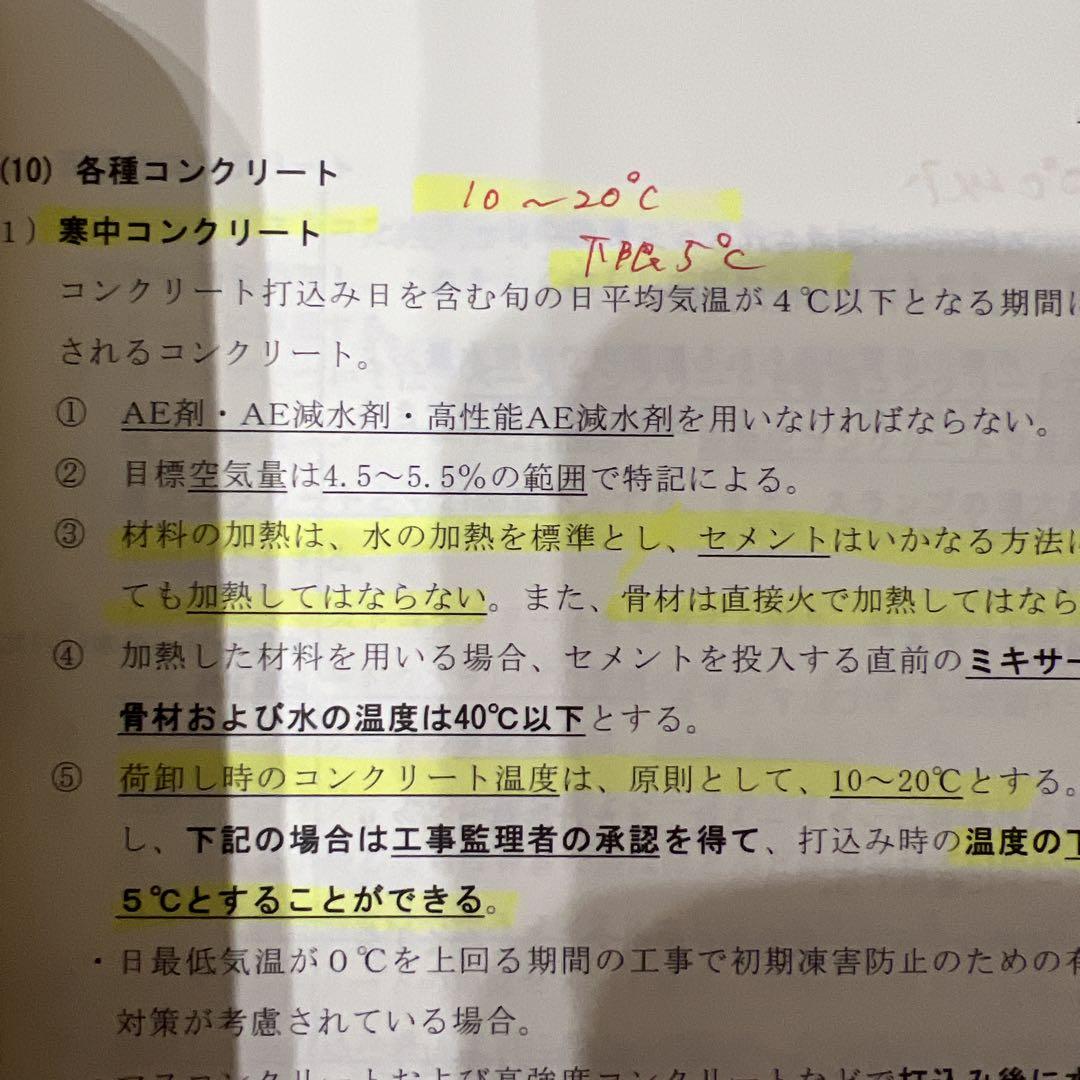 (10) 各種コンクリート
10～20℃
1）寒中コンクリート
下限5℃
コンクリート打込み日を含む旬の日平均気温が４℃以下となる期間に
されるコンクリート。
① AE剤・AE減水剤・高性能AE減水剤を用いなければならない。
② 目標空気量は4.5～5.5％の範囲で特記による。
③ 材料の加熱は、水の加熱を標準とし、セメントはいかなる方法に
ても加熱してはならない。また、骨材は直接火で加熱してはなら
④ 加熱した材料を用いる場合、セメントを投入する直前のミキサー
骨材および水の温度は40℃以下とする。
⑤ 荷卸し時のコンクリート温度は、原則として、10～20℃とする。
し、下記の場合は工事監理者の承認を得て、打込み時の温度の下
５℃とすることができる。
・日最低気温が０℃を上回る期間の工事で初期凍害防止のための有
対策が考慮されている場合。
マスコンクリートおよび高強度コンクリートなどで打込み後に水